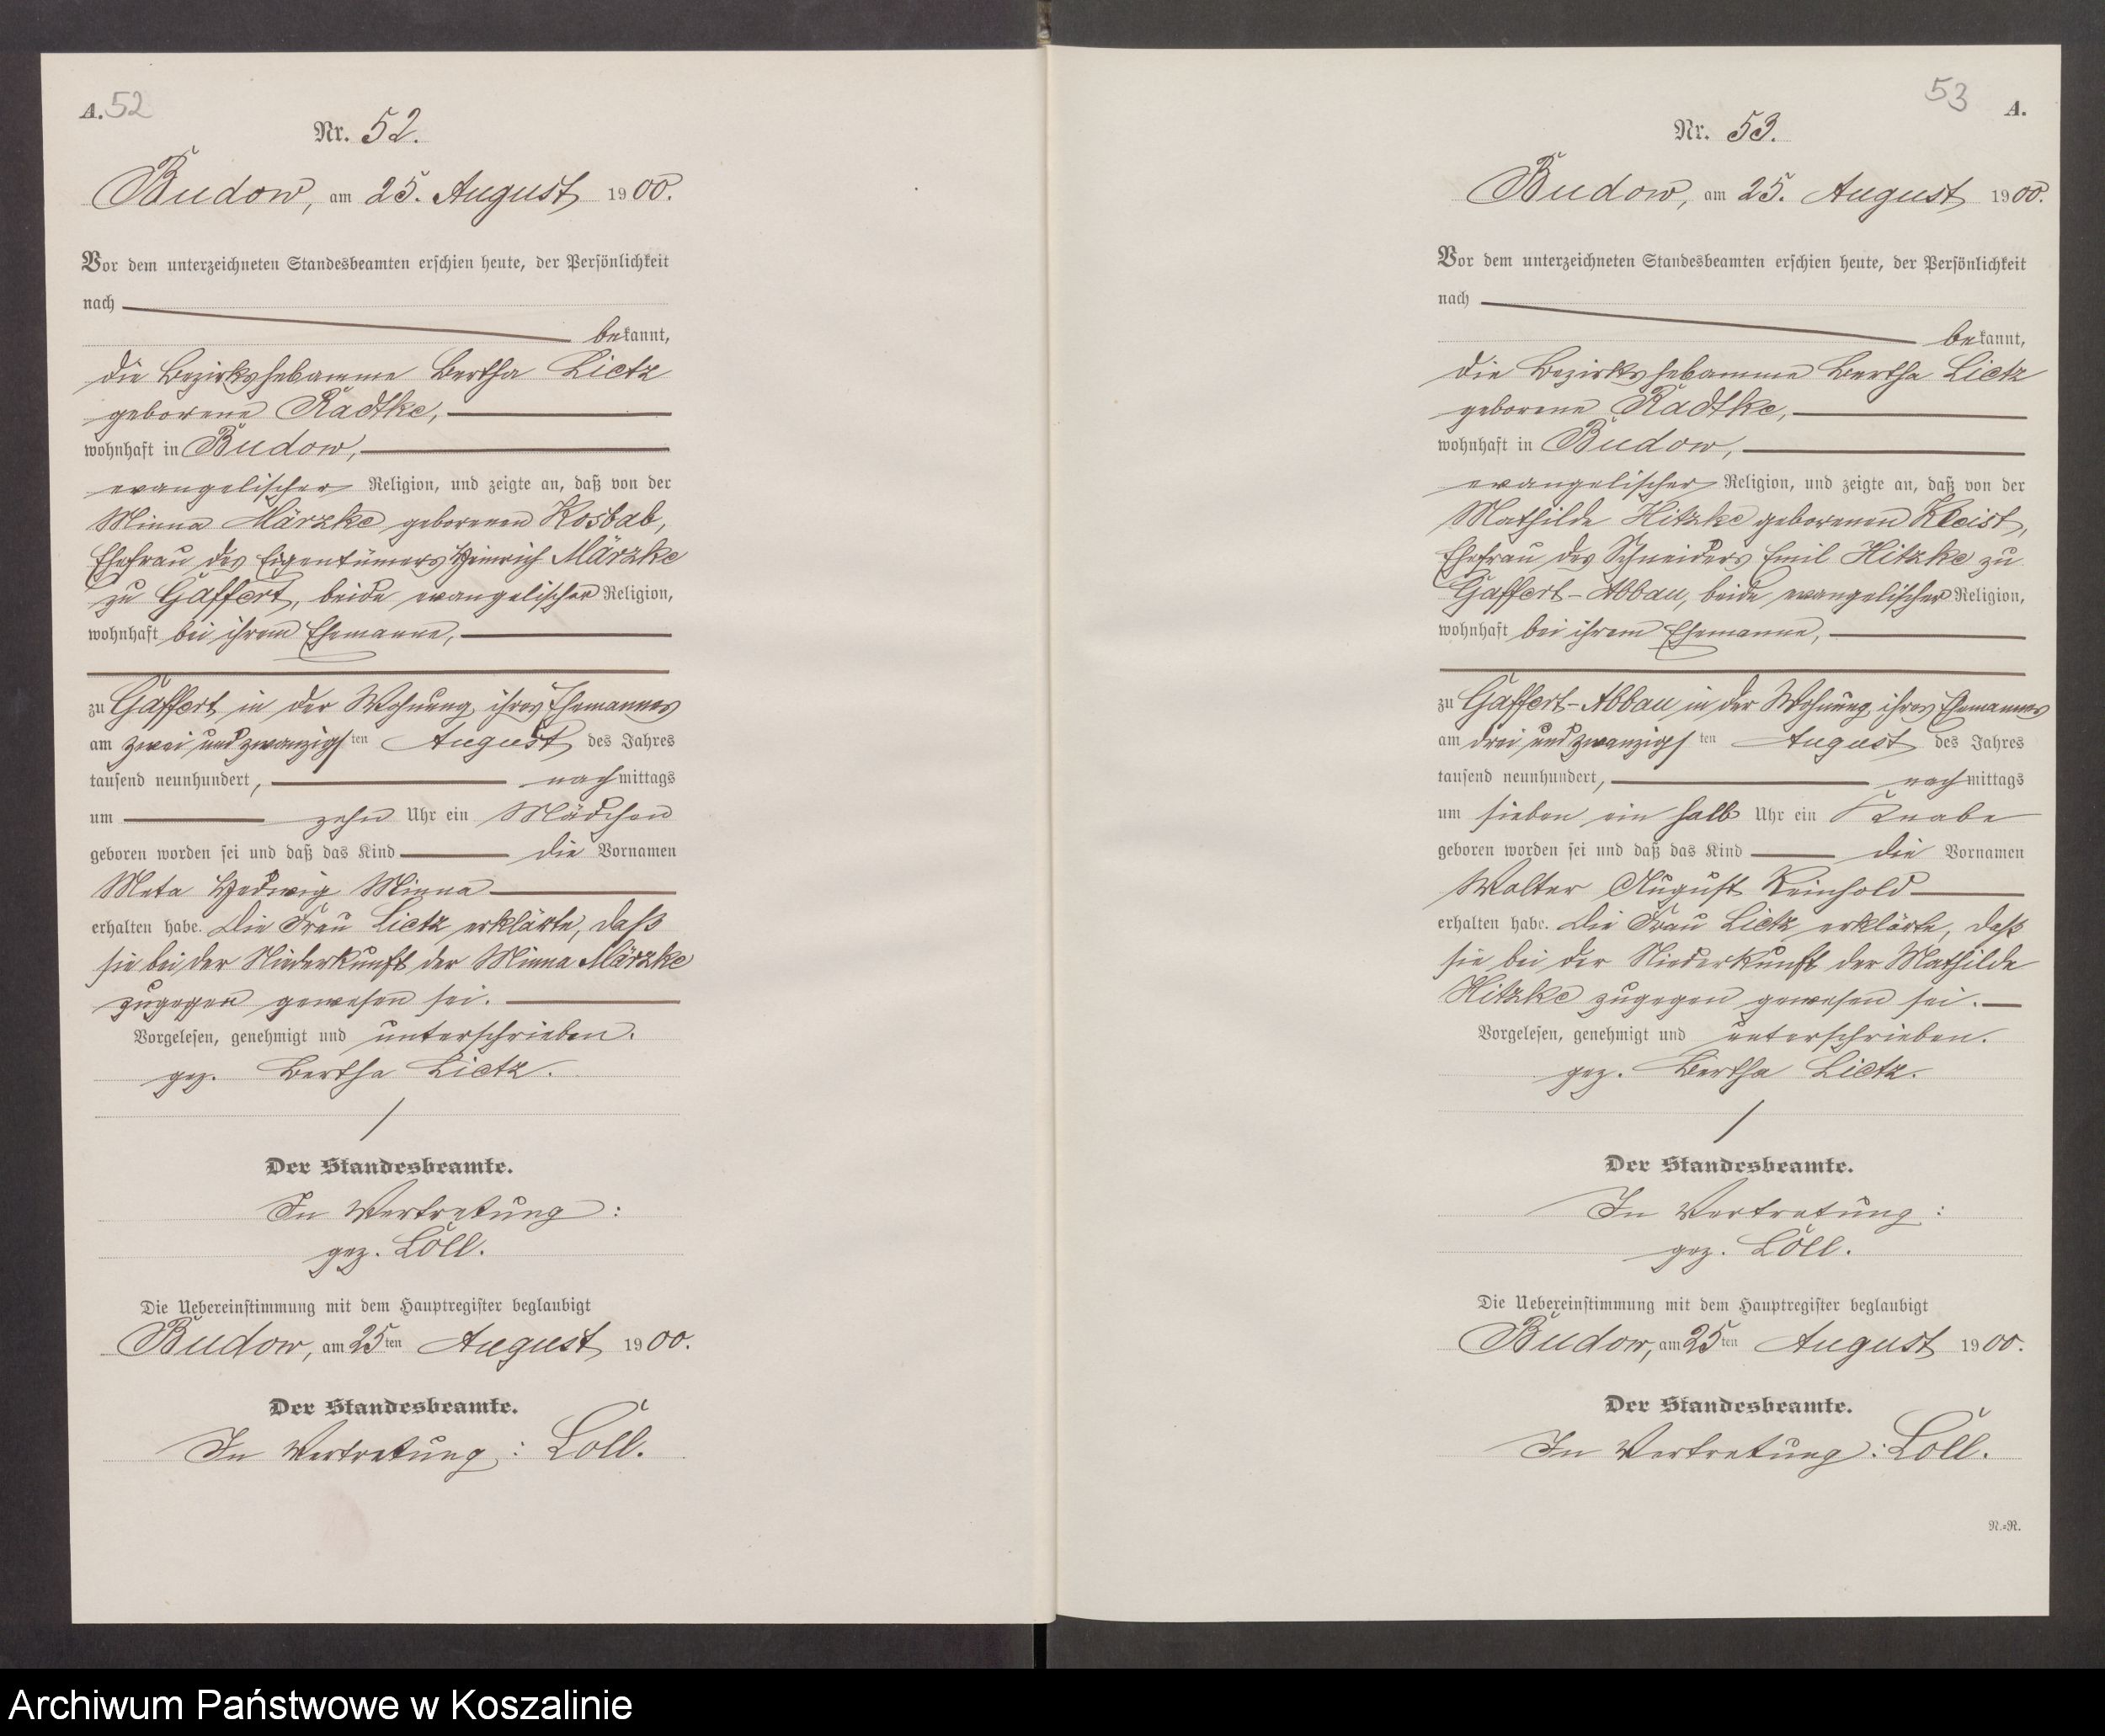 A. 52
Nr. 52.
Budow, am 25. August 1900.
Vor dem unterzeichneten Standesbeamten erschien heute, der Persönlichkeit
nach
bekannt,
die Bezirkshebamme Bertha Lietz
geborene Radtke,
wohnhaft in Budow,
evangelischer Religion, und zeigte an, daß von der
Minna Märzke geborenen Kosbab,
Ehefrau des Eigentümers Heinrich Märzke
zu Gaffert, beide evangelischer Religion,
wohnhaft bei ihrem Ehemanne,
zu Gaffert in der Wohnung ihres Ehemannes
am zwei und zwanzigsten August des Jahres
tausend neunhundert, nachmittags
um zehn Uhr ein Mädchen
geboren worden sei und daß das Kind die Vornamen
Meta Hedwig Minna
erhalten habe. Die Frau Lietz erklärte, daß
sie bei der Niederkunft der Minna Märzke
zugegen gewesen sei.
Vorgelesen, genehmigt und unterschrieben.
gez. Bertha Lietz.
Der Standesbeamte.
In Vertretung:
gez. Löll.
Die Uebereinstimmung mit dem Hauptregister beglaubigt
Budow, am 25ten August 1900.
Der Standesbeamte.
In Vertretung: Löll.
53 A.
Nr. 53.
Budow, am 25. August 1900.
Vor dem unterzeichneten Standesbeamten erschien heute, der Persönlichkeit
nach
bekannt,
die Bezirkshebamme Bertha Lietz
geborene Radtke,
wohnhaft in Budow,
evangelischer Religion, und zeigte an, daß von der
Mathilde Hitzke geborenen Kleist,
Ehefrau des Schneiders Emil Hitzke zu
Gaffert-Abbau, beide evangelischer Religion,
wohnhaft bei ihrem Ehemanne,
zu Gaffert-Abbau in der Wohnung ihres Ehemannes
am drei und zwanzigsten August des Jahres
tausend neunhundert, nachmittags
um sieben ein halb Uhr ein Knabe
geboren worden sei und daß das Kind die Vornamen
Walter August Reinhold
erhalten habe. Die Frau Lietz erklärte, daß
sie bei der Niederkunft der Mathilde
Hitzke zugegen gewesen sei.
Vorgelesen, genehmigt und unterschrieben.
gez. Bertha Lietz.
Der Standesbeamte.
In Vertretung:
gez. Löll.
Die Uebereinstimmung mit dem Hauptregister beglaubigt
Budow, am 25ten August 1900.
Der Standesbeamte.
In Vertretung: Löll.
N.=R.
Archiwum Państwowe w Koszalinie